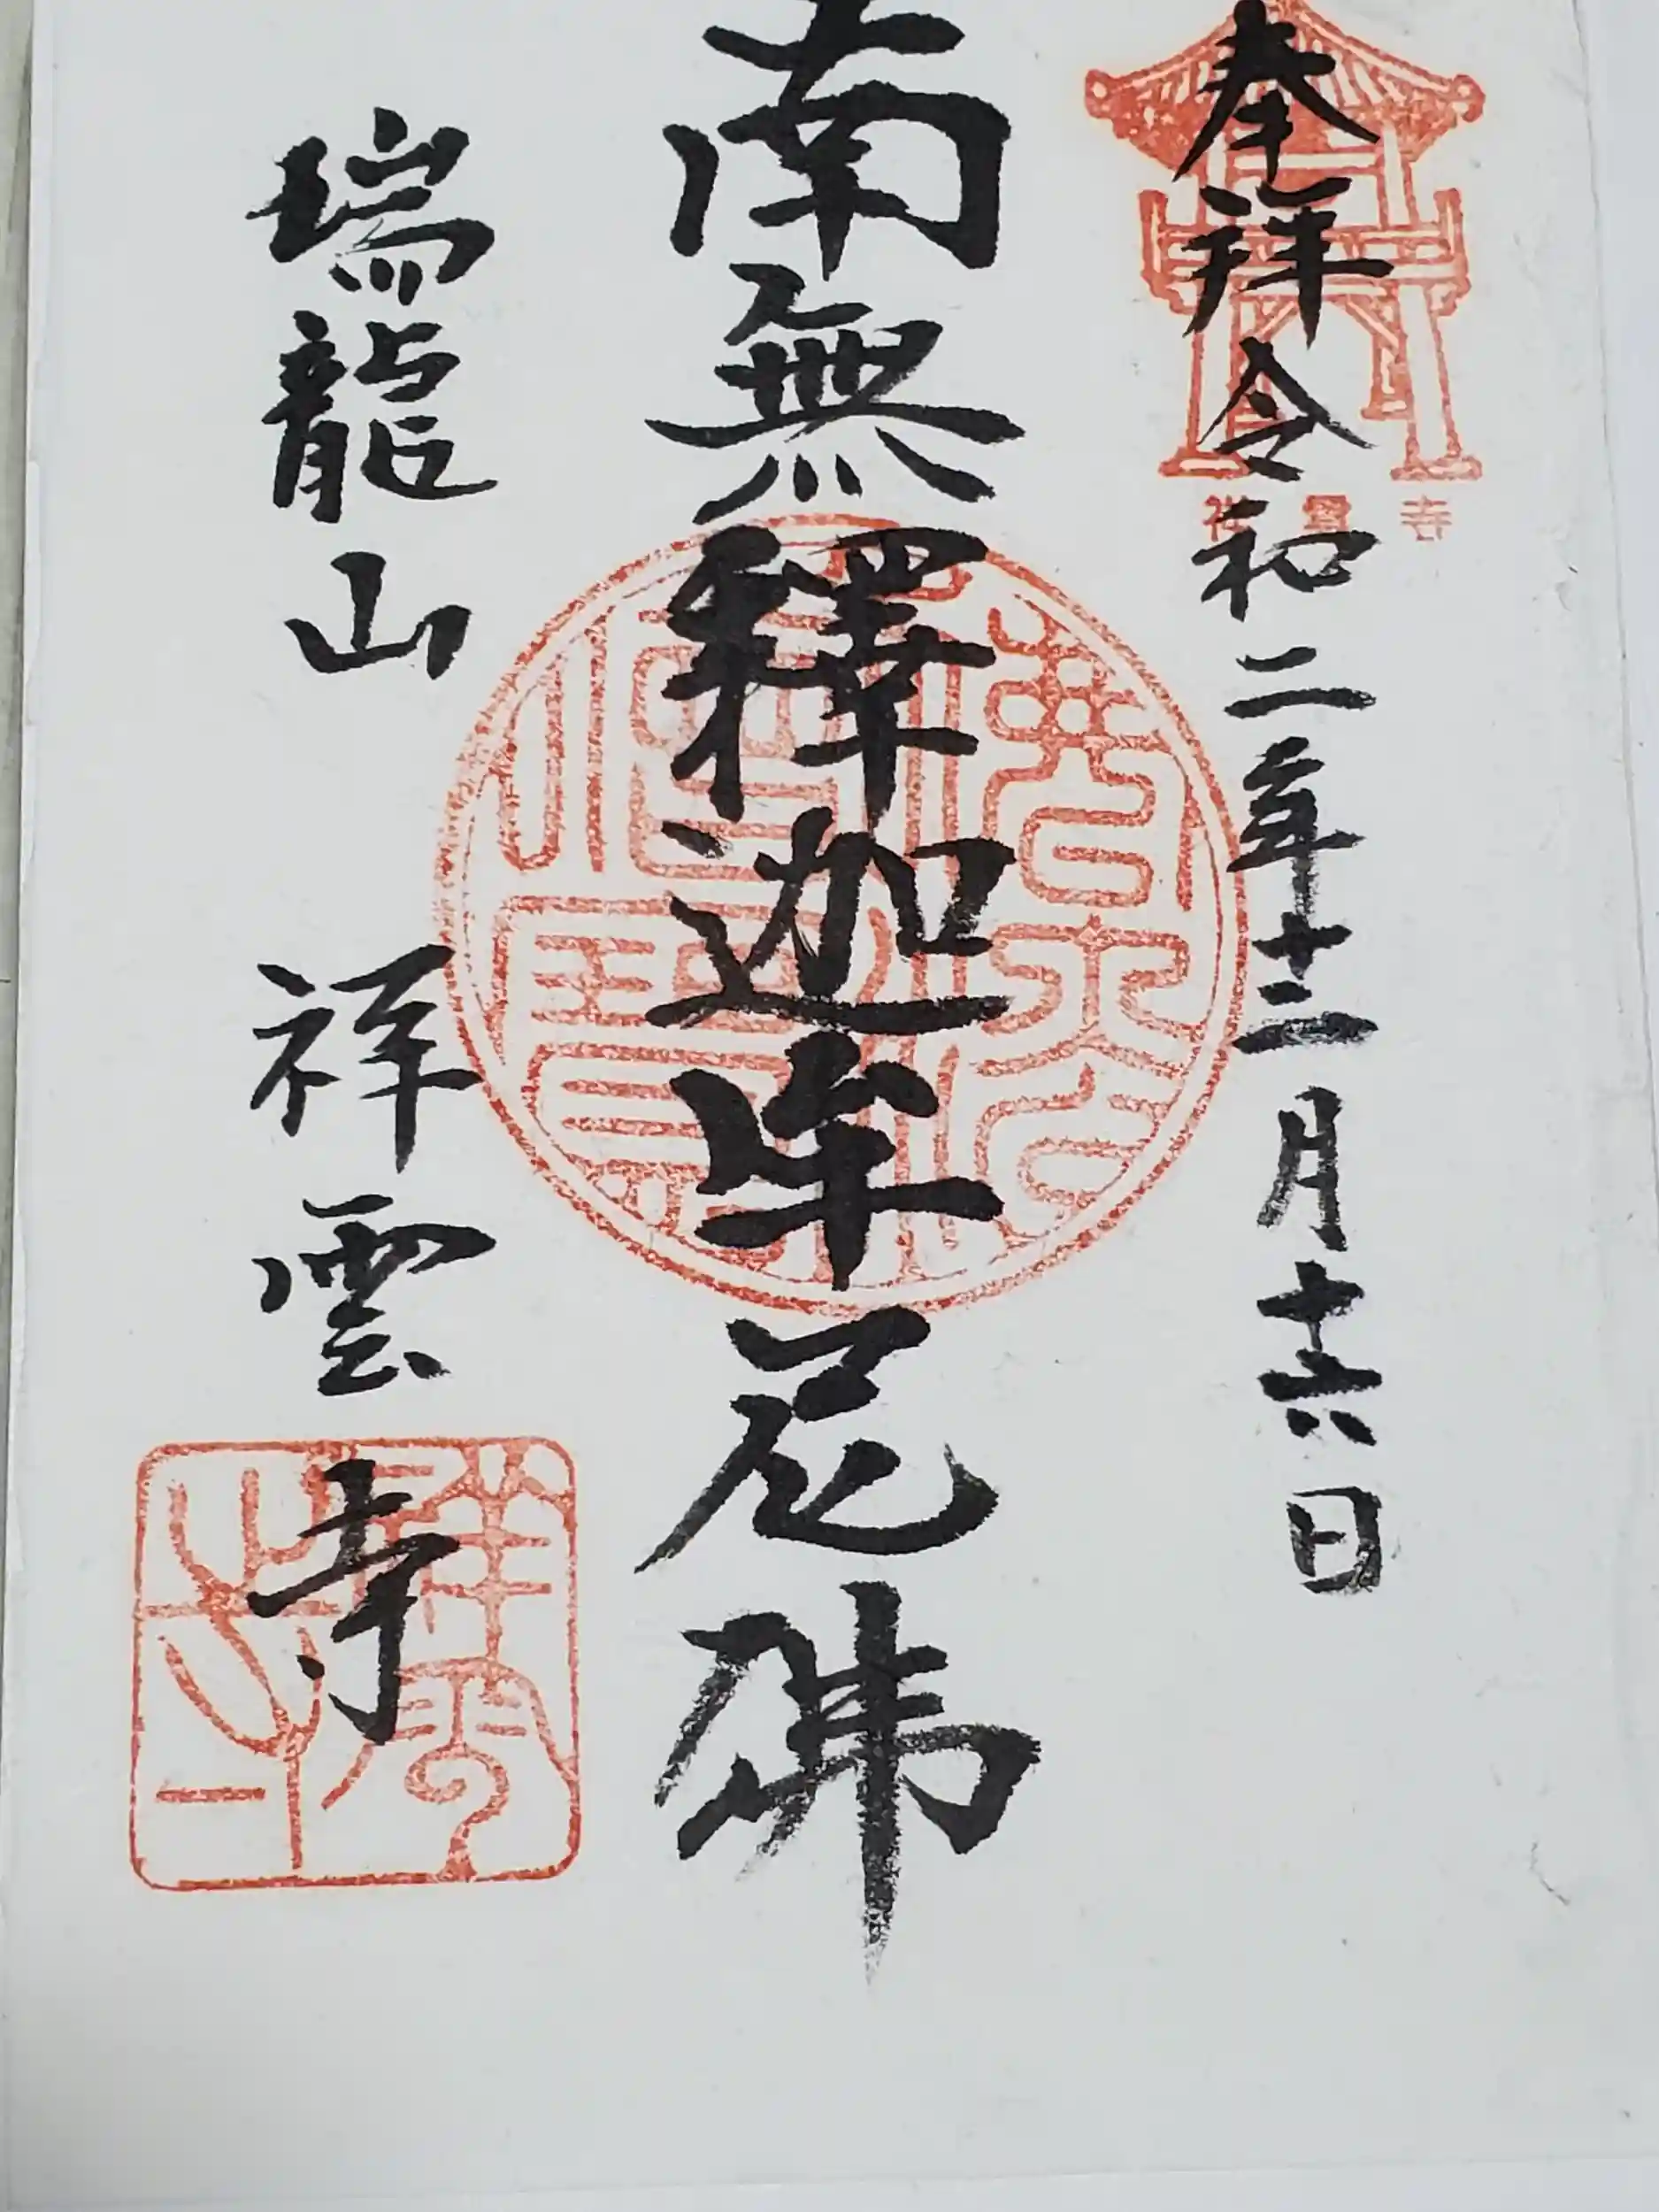 奉拝 令和二年十二月十六日
祥雲寺
南無釋迦牟尼佛
瑞龍山 祥雲寺